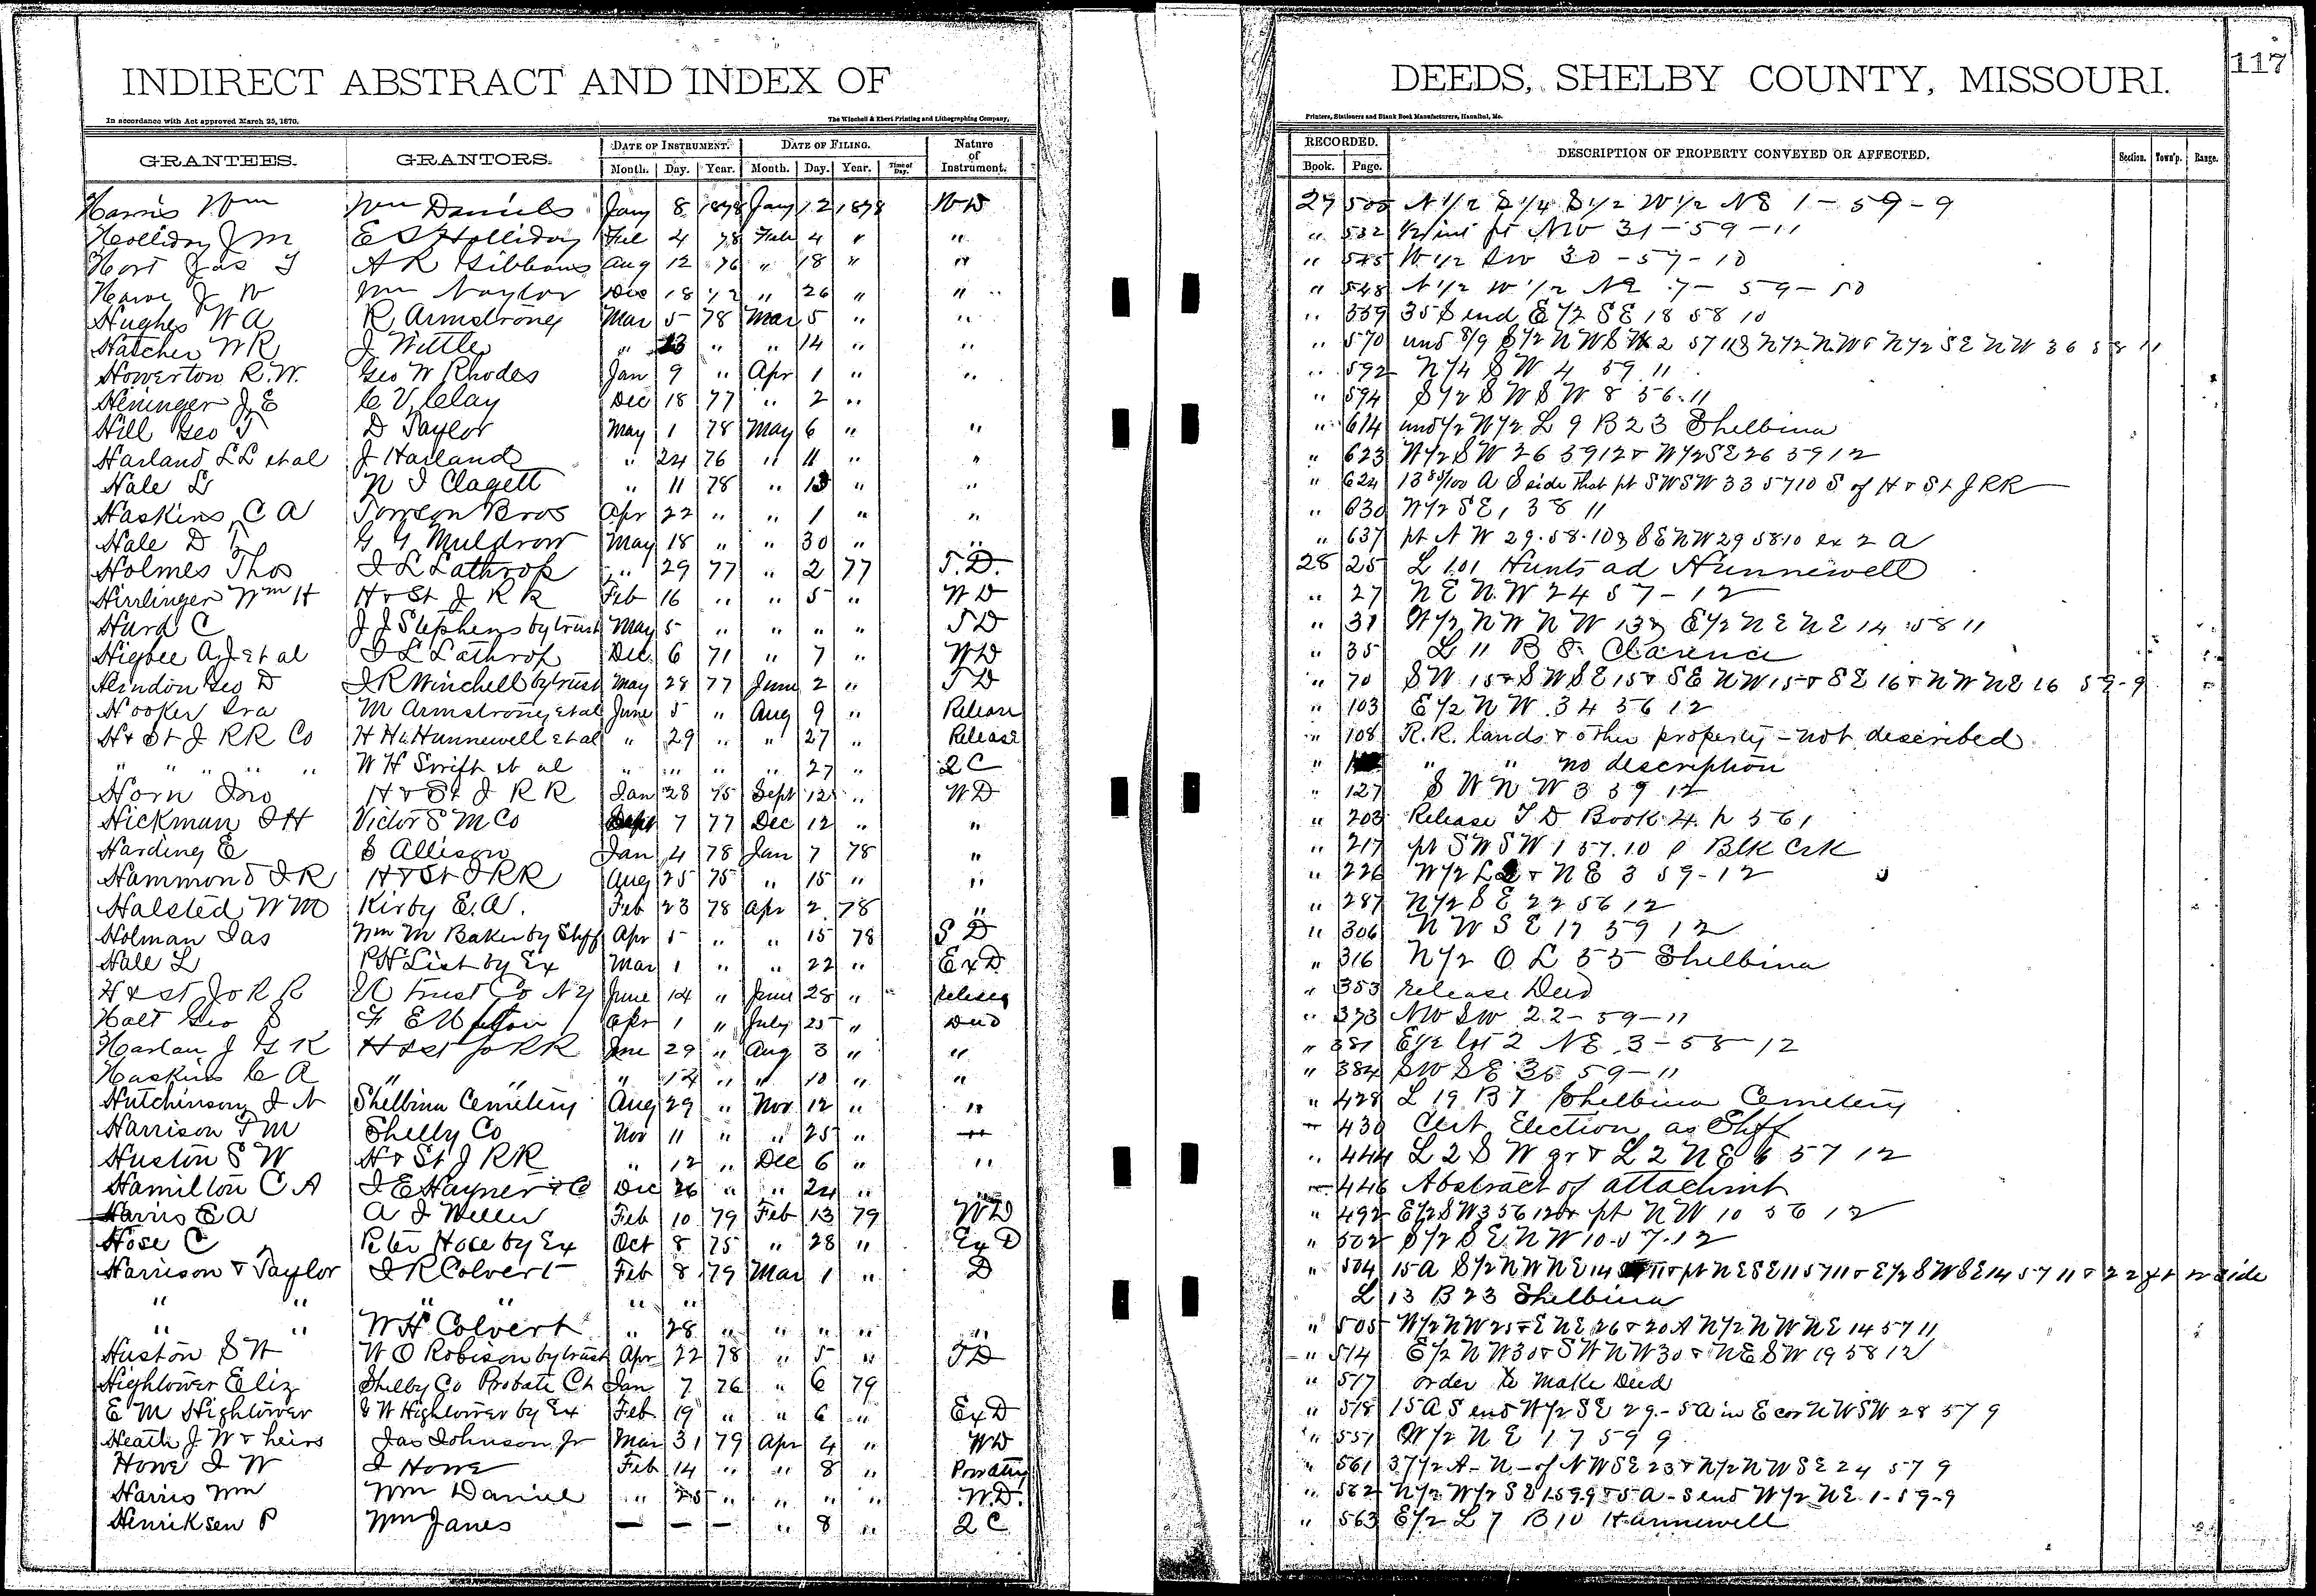 INDIRECT ABSTRACT AND INDEX OF DEEDS, SHELBY COUNTY, MISSOURI. 117
In accordance with Act approved March 25, 1870. The Winchell & Ebert Printing and Lithographing Company, Printers, Stationers and Blank Book Manufacturers, Hannibal, Mo.
GRANTEES. GRANTORS. DATE OF INSTRUMENT. DATE OF FILING. Nature of Instrument. RECORDED. DESCRIPTION OF PROPERTY CONVEYED OR AFFECTED. Section. Town'p. Range.
Month. Day. Year. Month. Day. Year. Time of Day. Book. Page.
Harris Wm Wm Daniels Jany 8 1878 Jany 12 1878 WD 27 N 1/2 E 1/4 S 1/2 W 1/2 NE 1-59-9
Holliday J M E S Holliday Feb 4 78 Feb 4 " " " 532 int pt NW 31-59-11
Hort Jas T A R Gibbons Aug 12 76 " 18 " " " 545 W 1/2 SW 30-57-10
J W Wm Naylor Dec 18 72 " 26 " " " 548 N 1/2 W 1/2 NE 7-59-10
Hughes W A R Armstrong Mar 5 78 Mar 5 " " " 559 35 S end E 1/2 SE 18 58 10
Hatcher W R J Wittle " 23 " " 14 " " " 570 und 8/9 S 1/2 NW SW 2 57 11 & N 1/2 NW & N 1/2 SE NW 36 58 11
Howerton R.W. Geo W Rhodes Jan 9 " Apr 1 " " " 592 N 1/4 SW 4 59 11
Heninger J E C V Clay Dec 18 77 " 2 " " 594 S 1/2 SW SW 8 56 11
Hill Geo T D Taylor May 1 78 May 6 " " " 614 und 1/2 N 1/2 L 9 B 23 Shelbina
Harland L L et al J Harland " 24 76 " 11 " " " 623 W 1/2 SW 26 59 12 & W 1/2 SE 26 59 12
Hale L N I Clagett " 11 78 " 13 " " " 624 13 85/100 A S side that pt SW SW 33 57 10 S of H & St J RR
Haskins C A Towson Bros Apr 22 " " 1 " " " 630 W 1/2 SE 1 58 11
Hale D T G G Muldrow May 18 " " 30 " " " 637 pt N W 29-58-10 & SE NW 29 58 10 ex 2 a
Holmes Thos J L Lathrop " 29 77 " 2 77 T.D. 28 25 L 101 Hunts ad Hunnewell
Hirrlinger Wm H H & St J R R Feb 16 " " 5 " WD " 27 NE NW 24 57-12
Hurd C J J Stephens by trust May 5 " " " " TD " 31 W 1/2 NW NW 13 & E 1/2 NE NE 14 58 11
Higbee A J et al J L Lathrop Dec 6 71 " 7 " WD " 35 L 11 B 8 Clarence
Herndon Geo D J R Winchell by trust May 28 77 June 2 " TD " 70 SW 15 & SW SE 15 & SE NW 15 & SE 16 & NW NE 16 59-9
Hooker Ira M Armstrong et al June 5 " Aug 9 " Release " 103 E 1/2 NW 34 56 12
H & St J RR Co H H Hunnewell et al " 29 " " 27 " Release " 108 R.R. lands & other property - not described
" " " " " W H Swift et al " " " 27 " Q C " " " no description
Horn Jno H & St J R R Jan 28 75 Sept 12 " WD " 127 SW NW 3 59 12
Hickman J H Victor S M Co Sept 7 77 Dec 12 " " " 203 Release T D Book 4 p 561
Harding E S Allison Jan 4 78 Jan 7 78 " " 217 pt SW SW 1 57 10 Blk Crk
Hammond J R H & St J RR Aug 25 75 " 15 " " " 226 W 1/2 L 2 & NE 3 59-12
Halsted W M Kirby E.A. Feb 23 78 Apr 2 78 " " 287 N 1/2 SE 22 56 12
Holman Jas Wm M Baker by Shff Apr 5 " " 15 78 S D " 306 NW SE 17 59 12
Hale L P H List by Ex Mar 1 " " 22 " Ex D " 316 N 1/2 O L 55 Shelbina
H & St Jo R R U Trust Co N Y June 14 " June 28 " release " 353 release Deed
Holt Geo S F E Upton Apr 1 " July 25 " Deed " 373 NW SW 22-59-11
Harlan J G K H & St Jo RR June 29 " Aug 3 " " " 381 E 1/2 lot 2 NE 3-58-12
Haskins C A " " " 12 " " 10 " " " 384 SW SE 35 59-11
Hutchinson J N Shelbina Cemetery Aug 29 " Nov 12 " " " 428 L 19 B 7 Shelbina Cemetery
Harrison T M Shelby Co Nov 11 " " 25 " " 430 Cert Election as Shff
Huston S W H & St J RR " 12 " Dec 6 " " " 444 L 2 SW qr & L 2 NE 6 57 12
Hamilton C A J E Hayner & Co Dec 26 " " 24 " " 446 Abstract of attachmt
Harris E A A J Weller Feb 10 79 Feb 13 79 WD " 492 E 1/2 SW 3 56 12 & pt NW 10 56 12
Hose C Peter Hose by Ex Oct 8 75 " 28 " Ex D " 502 S 1/2 SE NW 10-57-12
Harrison & Taylor J R Colvert Feb 8 79 Mar 1 " D " 504 15 A S 1/2 NW NE 14 & pt NE SE 11 57 11 & E 1/2 SW SE 14 57 11 & 22 ft N side
" " " " " " L 13 B 23 Shelbina
" " W H Colvert " 28 " " " " " " 505 W 1/2 NW 25 & E NE 26 & 20 A N 1/2 NW NE 14 57 11
Huston S W W O Robison by trust Apr 22 78 " 5 " TD " 514 E 1/2 NW 30 & SW NW 30 & NE SW 19 58 12
Hightower Eliz Shelby Co Probate Ct Jan 7 76 " 6 79 " 517 order to make Deed
E M Hightower J W Hightower by Ex Feb 19 " " 6 " Ex D " 518 15 A S end W 1/2 SE 29 - 5 A in E cor NW SW 28 57 9
Heath J W & heirs Jas Johnson Jr Mar 31 79 Apr 4 " WD " 551 W 1/2 NE 17 59 9
Howe J W J Howe Feb 14 " " 8 " " 561 37 1/2 A - N - of NW SE 23 & N 1/2 NW SE 24 57 9
Harris Wm Wm Daniel " 25 " " " " W.D. " 562 N 1/2 W 1/2 SE 1-59-9 & 5 A - S end W 1/2 NE 1-59-9
Henriksen P Wm Janes — — — " 8 " Q C " 563 E 1/2 L 7 B 10 Hunnewell